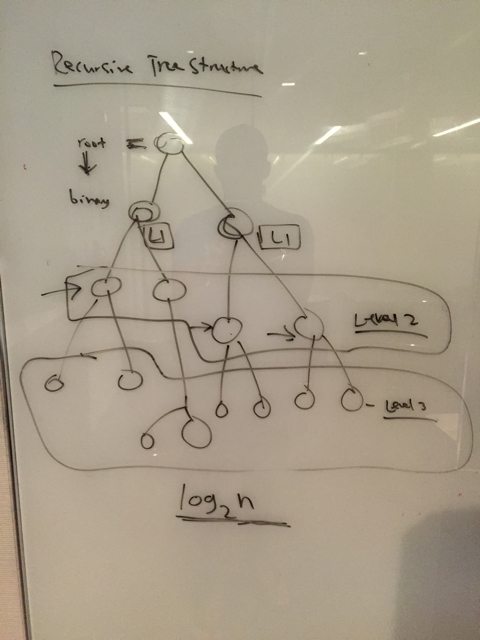 Recursive Tree Structure
root =
binary
L1
L1
Level 2
Level 3
log2n